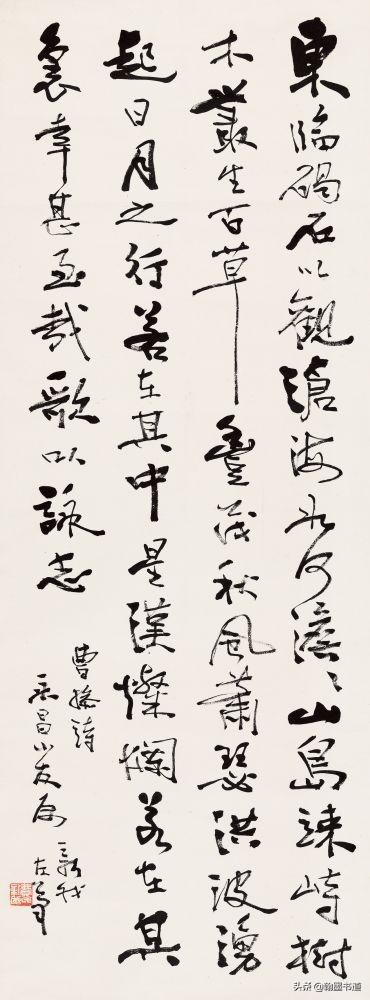 東臨碣石以觀滄海水何澹〻山島竦峙樹
木叢生百草豐茂秋風蕭瑟洪波湧
起日月之行若在其中星漢燦爛若在其
裏幸甚至哉歌以詠志
曹操詩
昌小友屬
新我
左筆
头条@翰墨书道